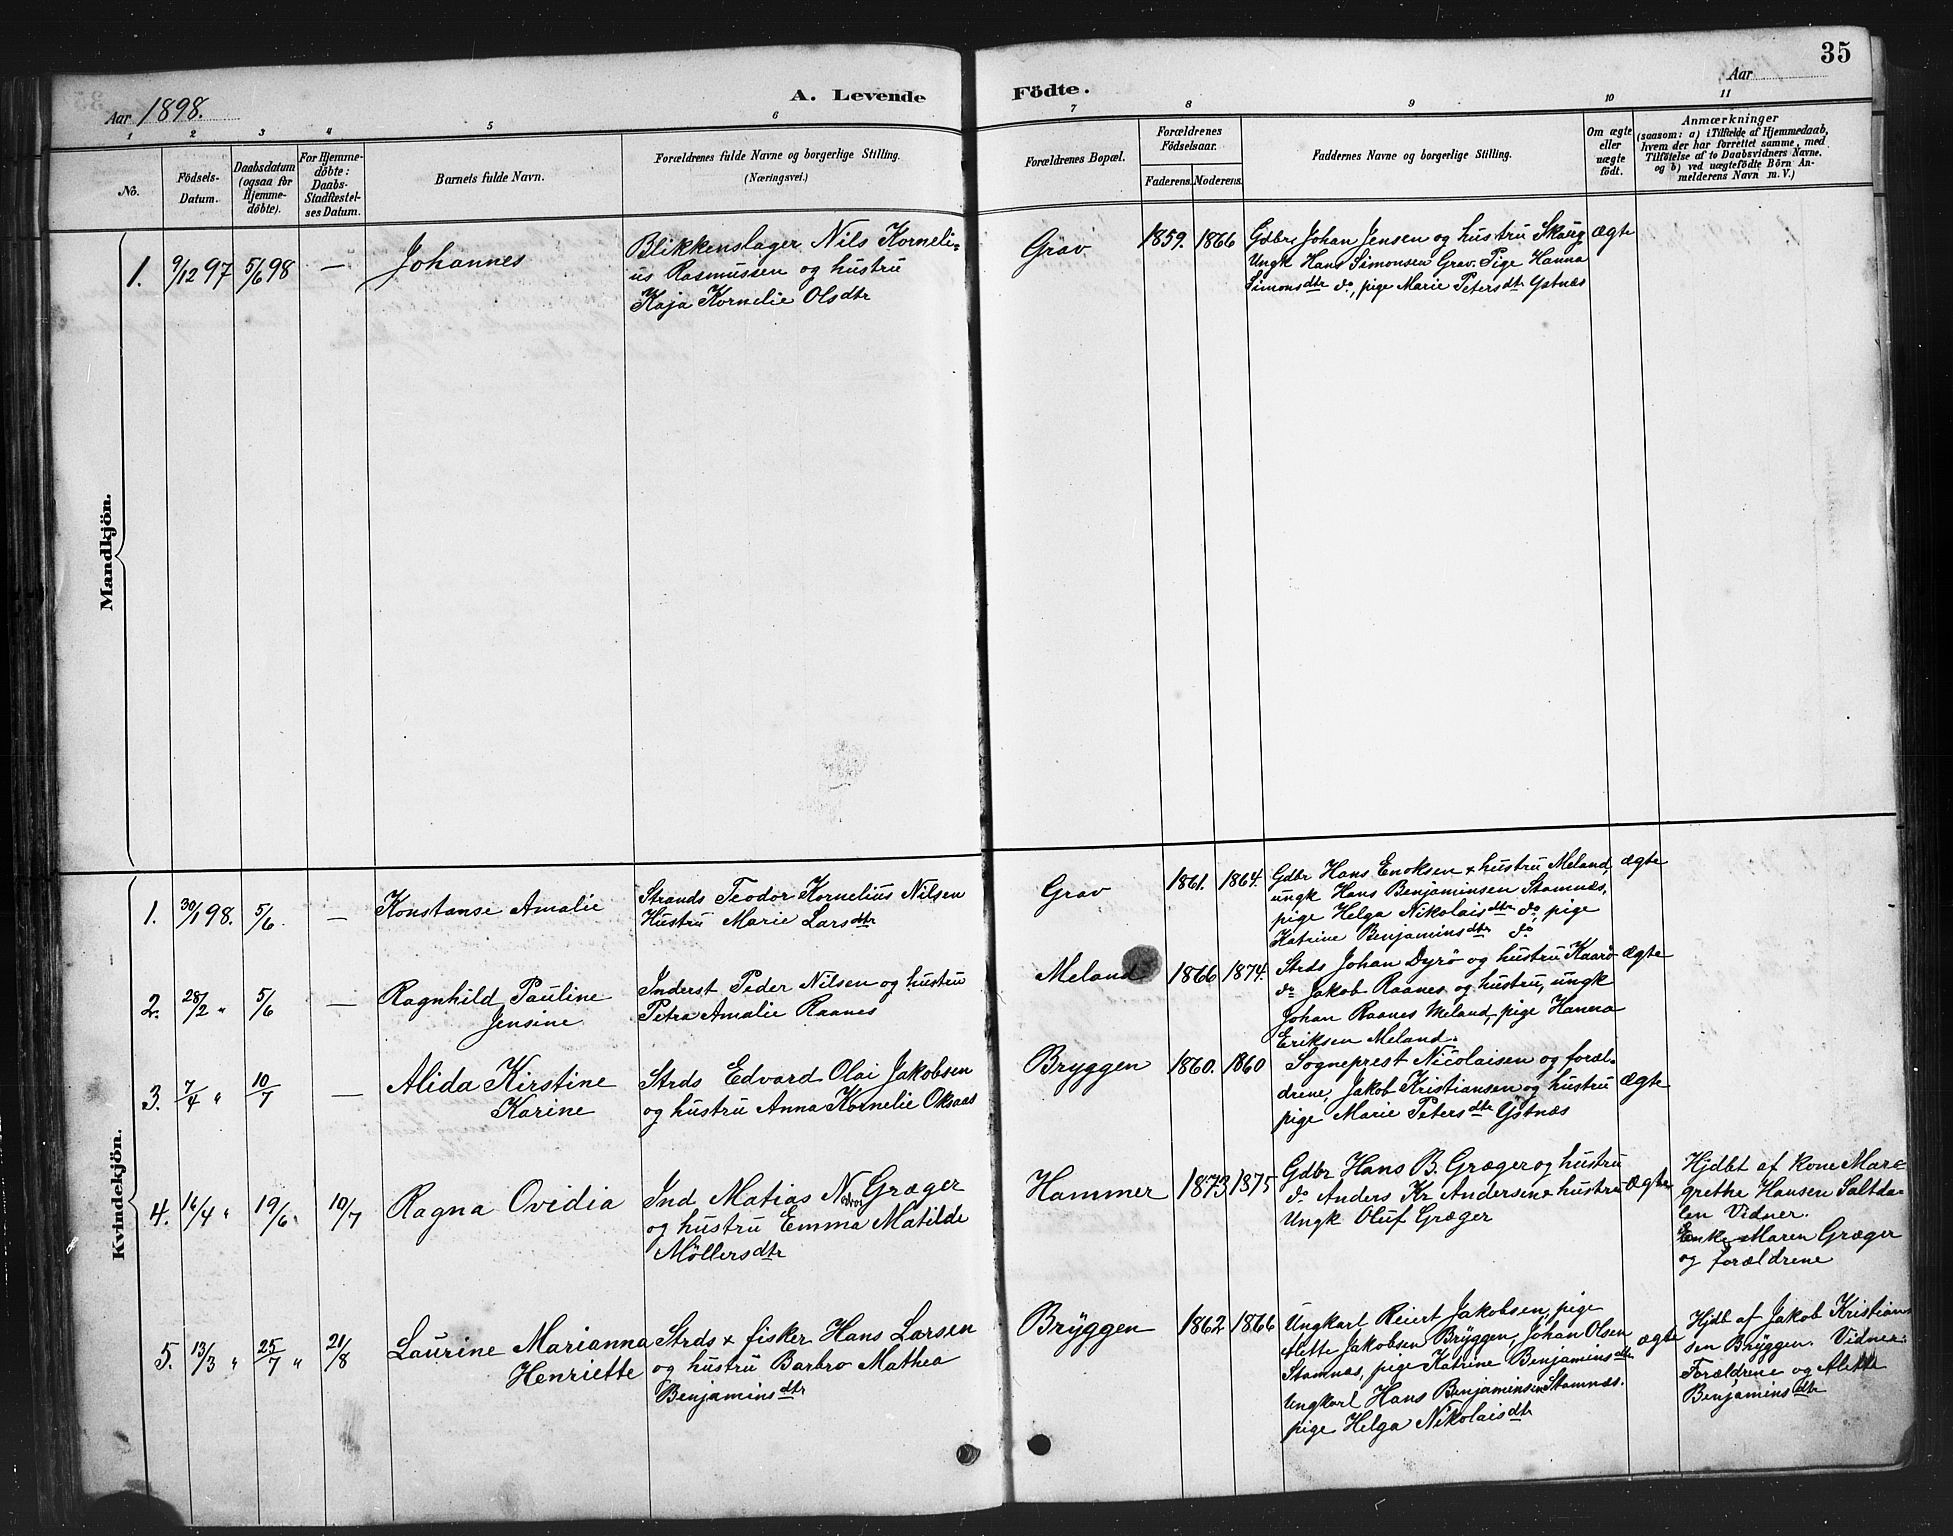 35
Aar 1898.
A. Levende Födte.
Aar
1 2 3 4 5 6 7 8 9 10 11
No.
Födsels-
Datum.
Daabsdatum
(ogsaa for
Hjemme-
döbte).
For Hjemme-
döbte:
Daabs-
Stadfæstel-
ses Datum.
Barnets fulde Navn.
Forældrenes fulde Navne og borgerlige Stilling.
(Næringsvei.)
Forældrenes Bopæl.
Forældrenes
Födselsaar.
Faderens. Moderens.
Faddernes Navne og borgerlige Stilling.
Om ægte
eller
uægte
født.
Anmærkninger
(saasom: a) i Tilfælde af Hjemmedaab,
hvem der har forrettet samme, med
Tilföielse af to Daabsvidners Navne,
og b) ved uægtefödte Börn An-
melderens Navn m. V.)
Mandkjön.
1. 9/12 97 5/6 98 — Johannes
Blikkenslager Nils Korneli-
us Rasmussen og hustru
Kaja Kornelie Olsdtr
Grav. 1859. 1866
Gdbr Johan Jensen og hustru Skaug
Ungk Hans Simonsen Grav. Pige Hanna
Simonsdtr do, pige Marie Petersdtr Ystnæs
ægte
Kvindekjön.
1. 30/1 98. 5/6. — Konstanse Amalie
Strands Teodor Kornelius Nilsen
Hustru Marie Larsdtr
Grav 1861. 1864.
Gdbr Hans Enoksen + hustru Meland,
ungk Hans Benjaminsen Stamnæs,
pige Helga Nikolaisdtr do, pige
Katrine Benjaminsdtr do
ægte
2. 28/2 " 5/6 — Ragnhild Pauline
Jensine
Inderst Peder Nilsen og hustru
Petra Amalie Raanes
Meland 1866 1874.
Strds Johan Dyrø og hustru Kaarø
do Jakob Raanes og hustru, ungk
Johan Raanes Meland, pige Hanna
Eriksen Meland.
ægte
3. 7/4 " 10/7 — Alida Kirstine
Karine
Strds Edvard Olai Jakobsen
og hustru Anna Kornelie Oksaas
Bryggen 1860. 1860
Sogneprest Nicolaisen og foræl-
drene, Jakob Kristiansen og hustru
pige Marie Petersdtr Ystnæs
ægte
4. 16/4 " 19/6 " 10/7 Ragna Ovidia
Ind Matias Græger
og hustru Emma Matilde
Möllersdtr
Hammer 1873 1875
Gdbr Hans B. Græger og hustru
do Anders Kr Andersen + hustru
Ungk Oluf Græger
ægte
Hjdbt af kone Mar-
grethe Hansen Saltda-
len Vidner.
Enke Maren Græger
og forældrene
5. 13/3 " 25/7 " 21/8 Laurine Marianna
Henriette
Strds + fisker Hans Larsen
og hustru Barbro Mathea
Benjaminsdtr
Bryggen 1862 1866
Ungkarl Reiert Jakobsen, pige
Alette Jakobsen Bryggen, Johan Olsen
Stamnæs, pige Katrine Benjaminsdtr
Ungkarl Hans Benjaminsen Stamnæs.
pige Helga Nikolaisdtr
ægte
Hjdb af Jakob Kristian-
sen Bryggen. Vidner:
Forældrene og Alette
Benjaminsdtr